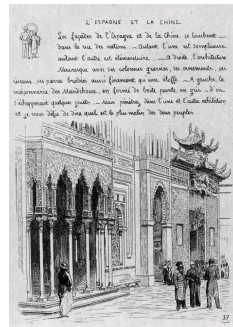 L'ESPAGNE ET LA CHINE.
Les façades de l'Espagne et de la Chine se touchent
dans la rue des nations. Autant l'une est somptueuse
autant l'autre est élémentaire. A droite, l'architecture
Mauresque avec ses colonnes graciles, ses ornements, ses
vitraux, ses pierres brodées aussi finement qu'une étoffe. A gauche, la
maçonnerie des Mandchoux, en forme de boîte peinte, en gris, d'où
s'échapperait quelque jouet. Mais pénétrez dans l'une et l'autre exhibition
et je vous défie de dire quel est le plus malin des deux peuples
37